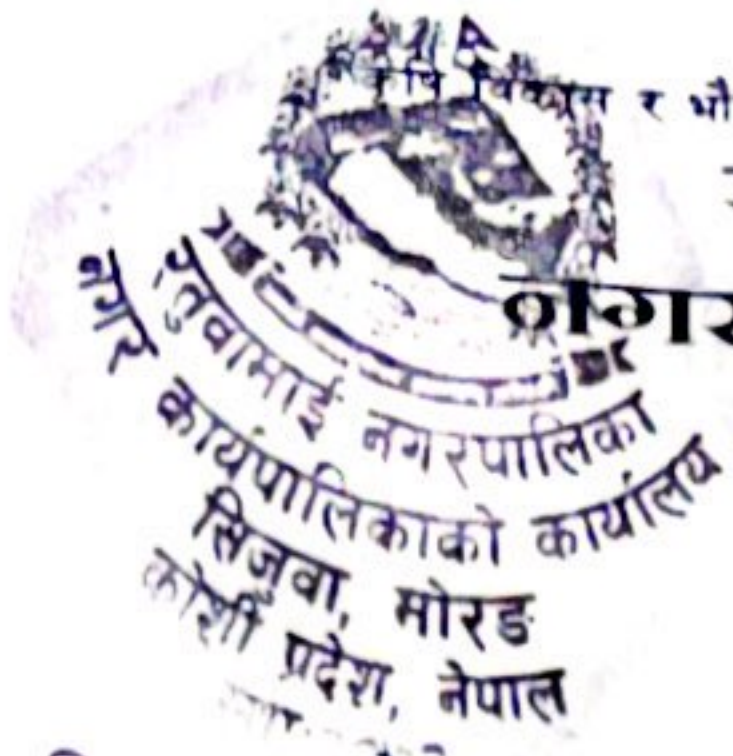 कृषि विकास र भौ
नगर
रतुवामाई नगरपालिका
नगर कार्यपालिकाको कार्यालय
सिजुवा, मोरङ
कोशी प्रदेश, नेपाल